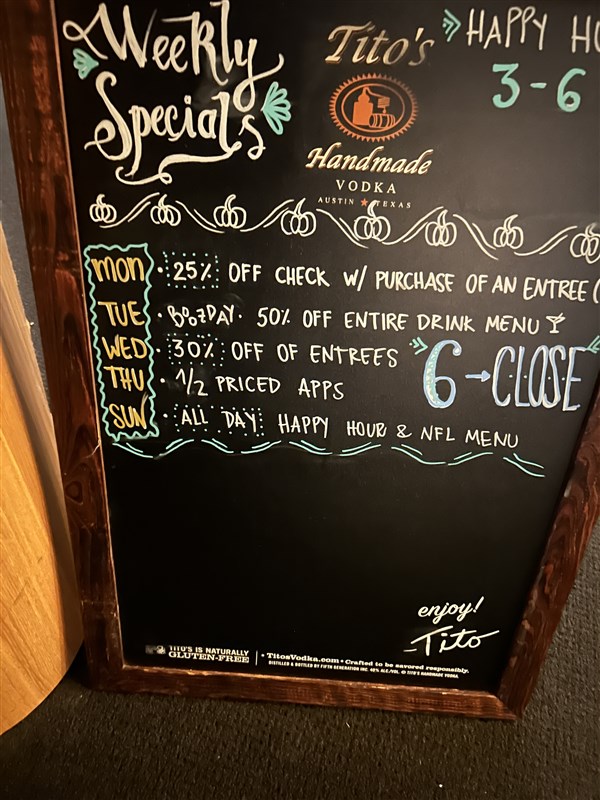 Weekly
Specials
Tito's
Handmade
VODKA
AUSTIN ★ TEXAS
HAPPY
3-6
MON • 25% OFF CHECK W/ PURCHASE OF AN ENTREE (
TUE • BOOZDAY • 50% OFF ENTIRE DRINK MENU
WED • 30% OFF OF ENTREES
THU • 1/2 PRICED APPS
6→CLOSE
SUN • ALL DAY HAPPY HOUR & NFL MENU
enjoy!
-Tito
TITO'S IS NATURALLY
GLUTEN-FREE
• TitosVodka.com • Crafted to be savored responsibly.
DISTILLED & BOTTLED BY FIFTH GENERATION INC. 40% ALC./VOL. © TITO'S HANDMADE VODKA.